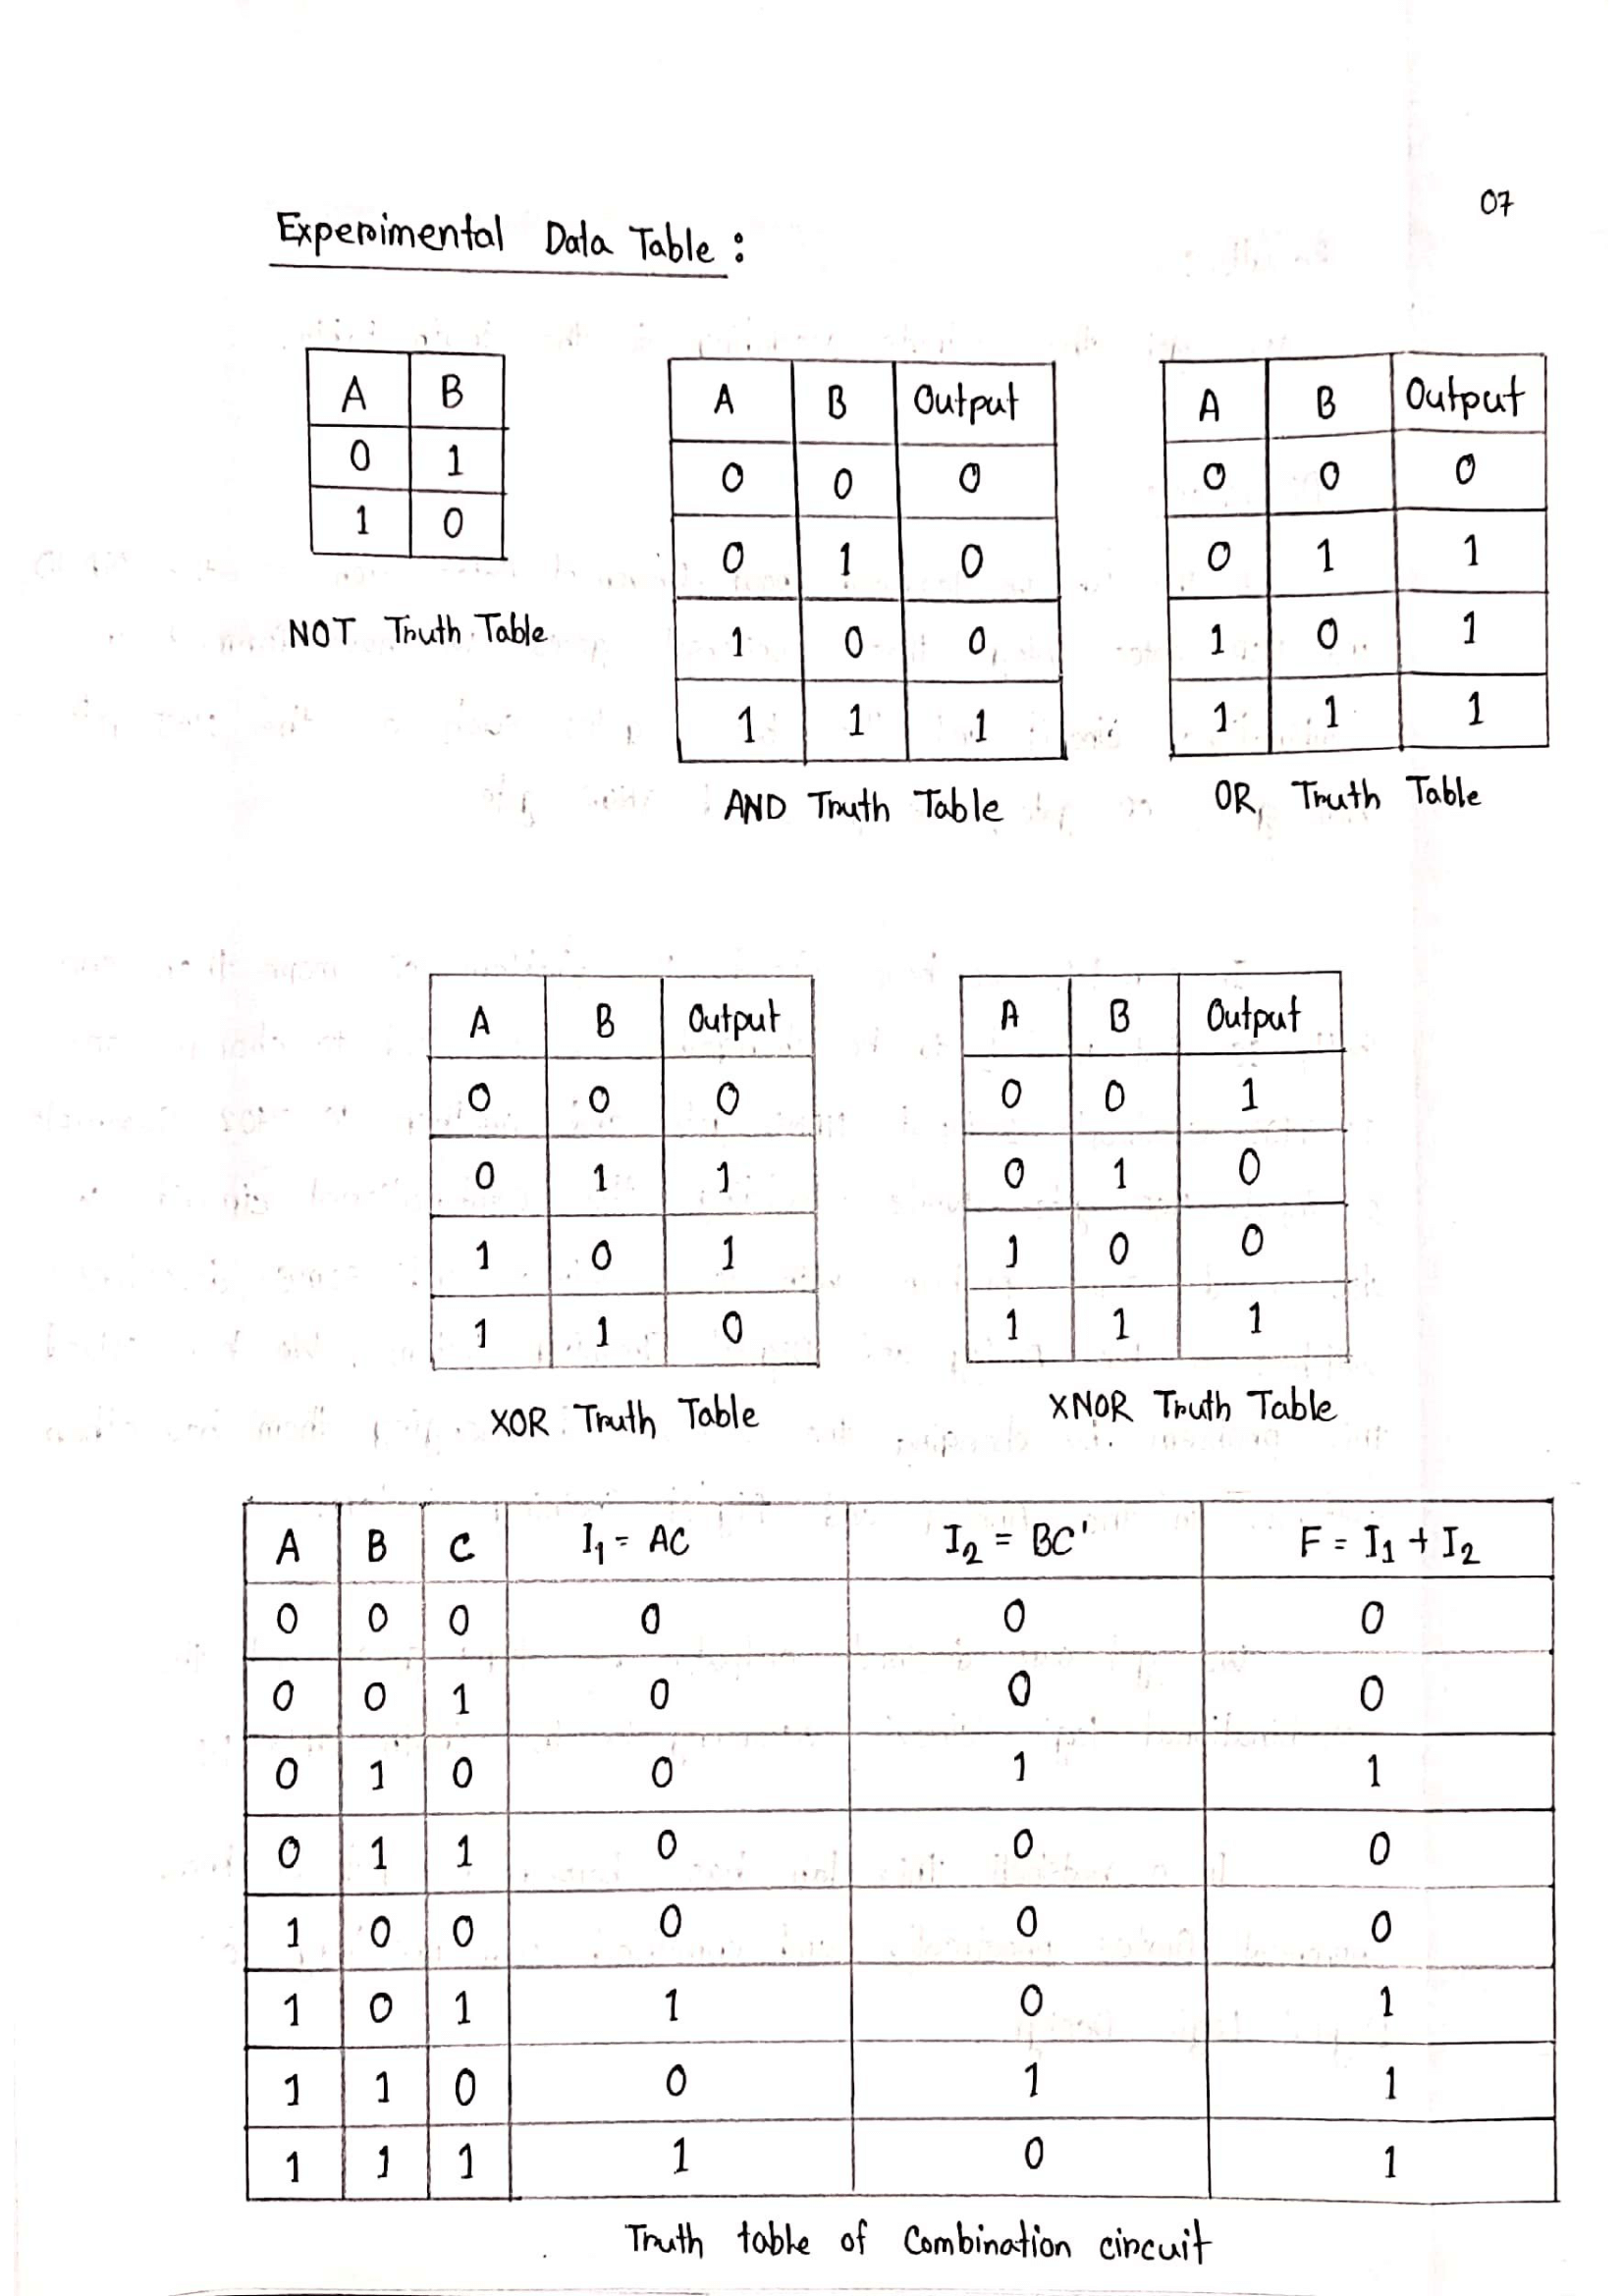 07
Experimental Data Table :
A B
0 1
1 0
NOT Truth Table
A B Output
0 0 0
0 1 0
1 0 0
1 1 1
AND Truth Table
A B Output
0 0 0
0 1 1
1 0 1
1 1 1
OR Truth Table
A B Output
0 0 0
0 1 1
1 0 1
1 1 0
XOR Truth Table
A B Output
0 0 1
0 1 0
1 0 0
1 1 1
XNOR Truth Table
A B C I₁ = AC I₂ = BC' F = I₁ + I₂
0 0 0 0 0 0
0 0 1 0 0 0
0 1 0 0 1 1
0 1 1 0 0 0
1 0 0 0 0 0
1 0 1 1 0 1
1 1 0 0 1 1
1 1 1 1 0 1
Truth table of Combination circuit